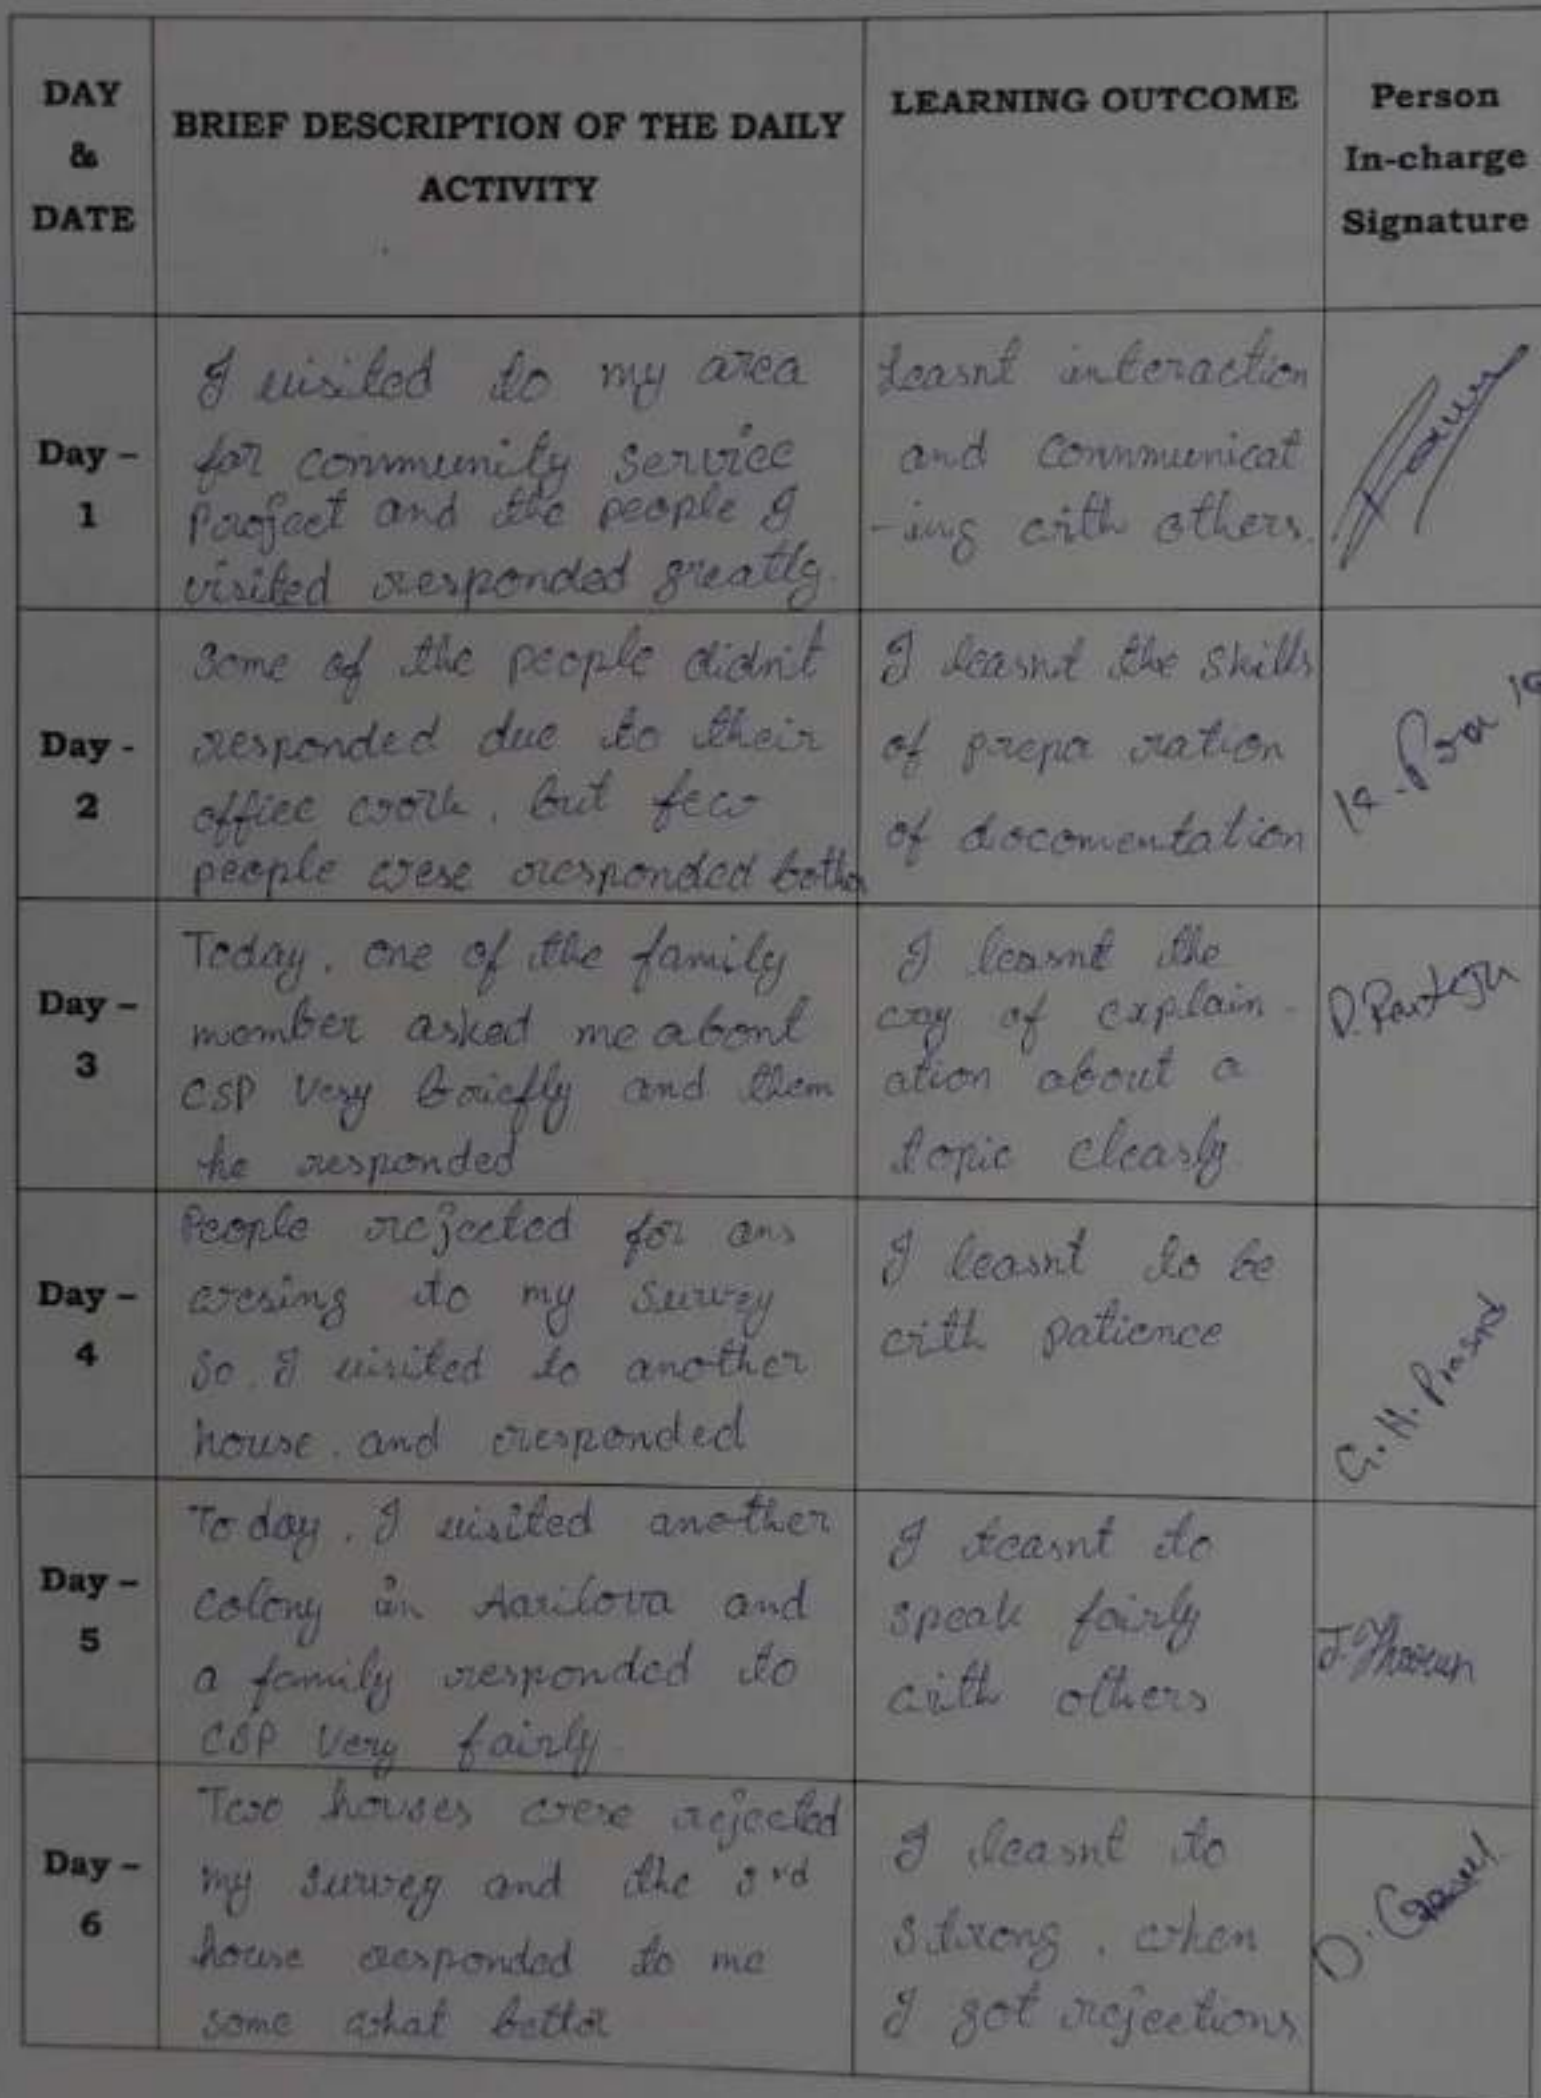 DAY
&
DATE
BRIEF DESCRIPTION OF THE DAILY
ACTIVITY
LEARNING OUTCOME
Person
In-charge
Signature
Day –
1
I visited to my area
for community service
Project and the people I
visited responded greatly.
Learnt interaction
and communicat
-ing with others.
Day -
2
Some of the people didn't
responded due to their
office work, but few
people were responded better
I learnt the skills
of prepa ration
of documentation
Day –
3
Today, one of the family
member asked me about
CSP Very briefly and them
he responded
I learnt the
way of explain -
ation about a
topic clearly
Day –
4
People rejected for ans
wering to my survey
so, I visited to another
house, and responded
I learnt to be
with patience
G. H. Prasad
Day –
5
To day, I visited another
colony in Aarilova and
a family responded to
CSP Very fairly.
I learnt to
speak fairly
with others
Day –
6
Two houses were rejected
my survey and the 3rd
house responded to me
some what better
I learnt to
strong, when
I got rejections